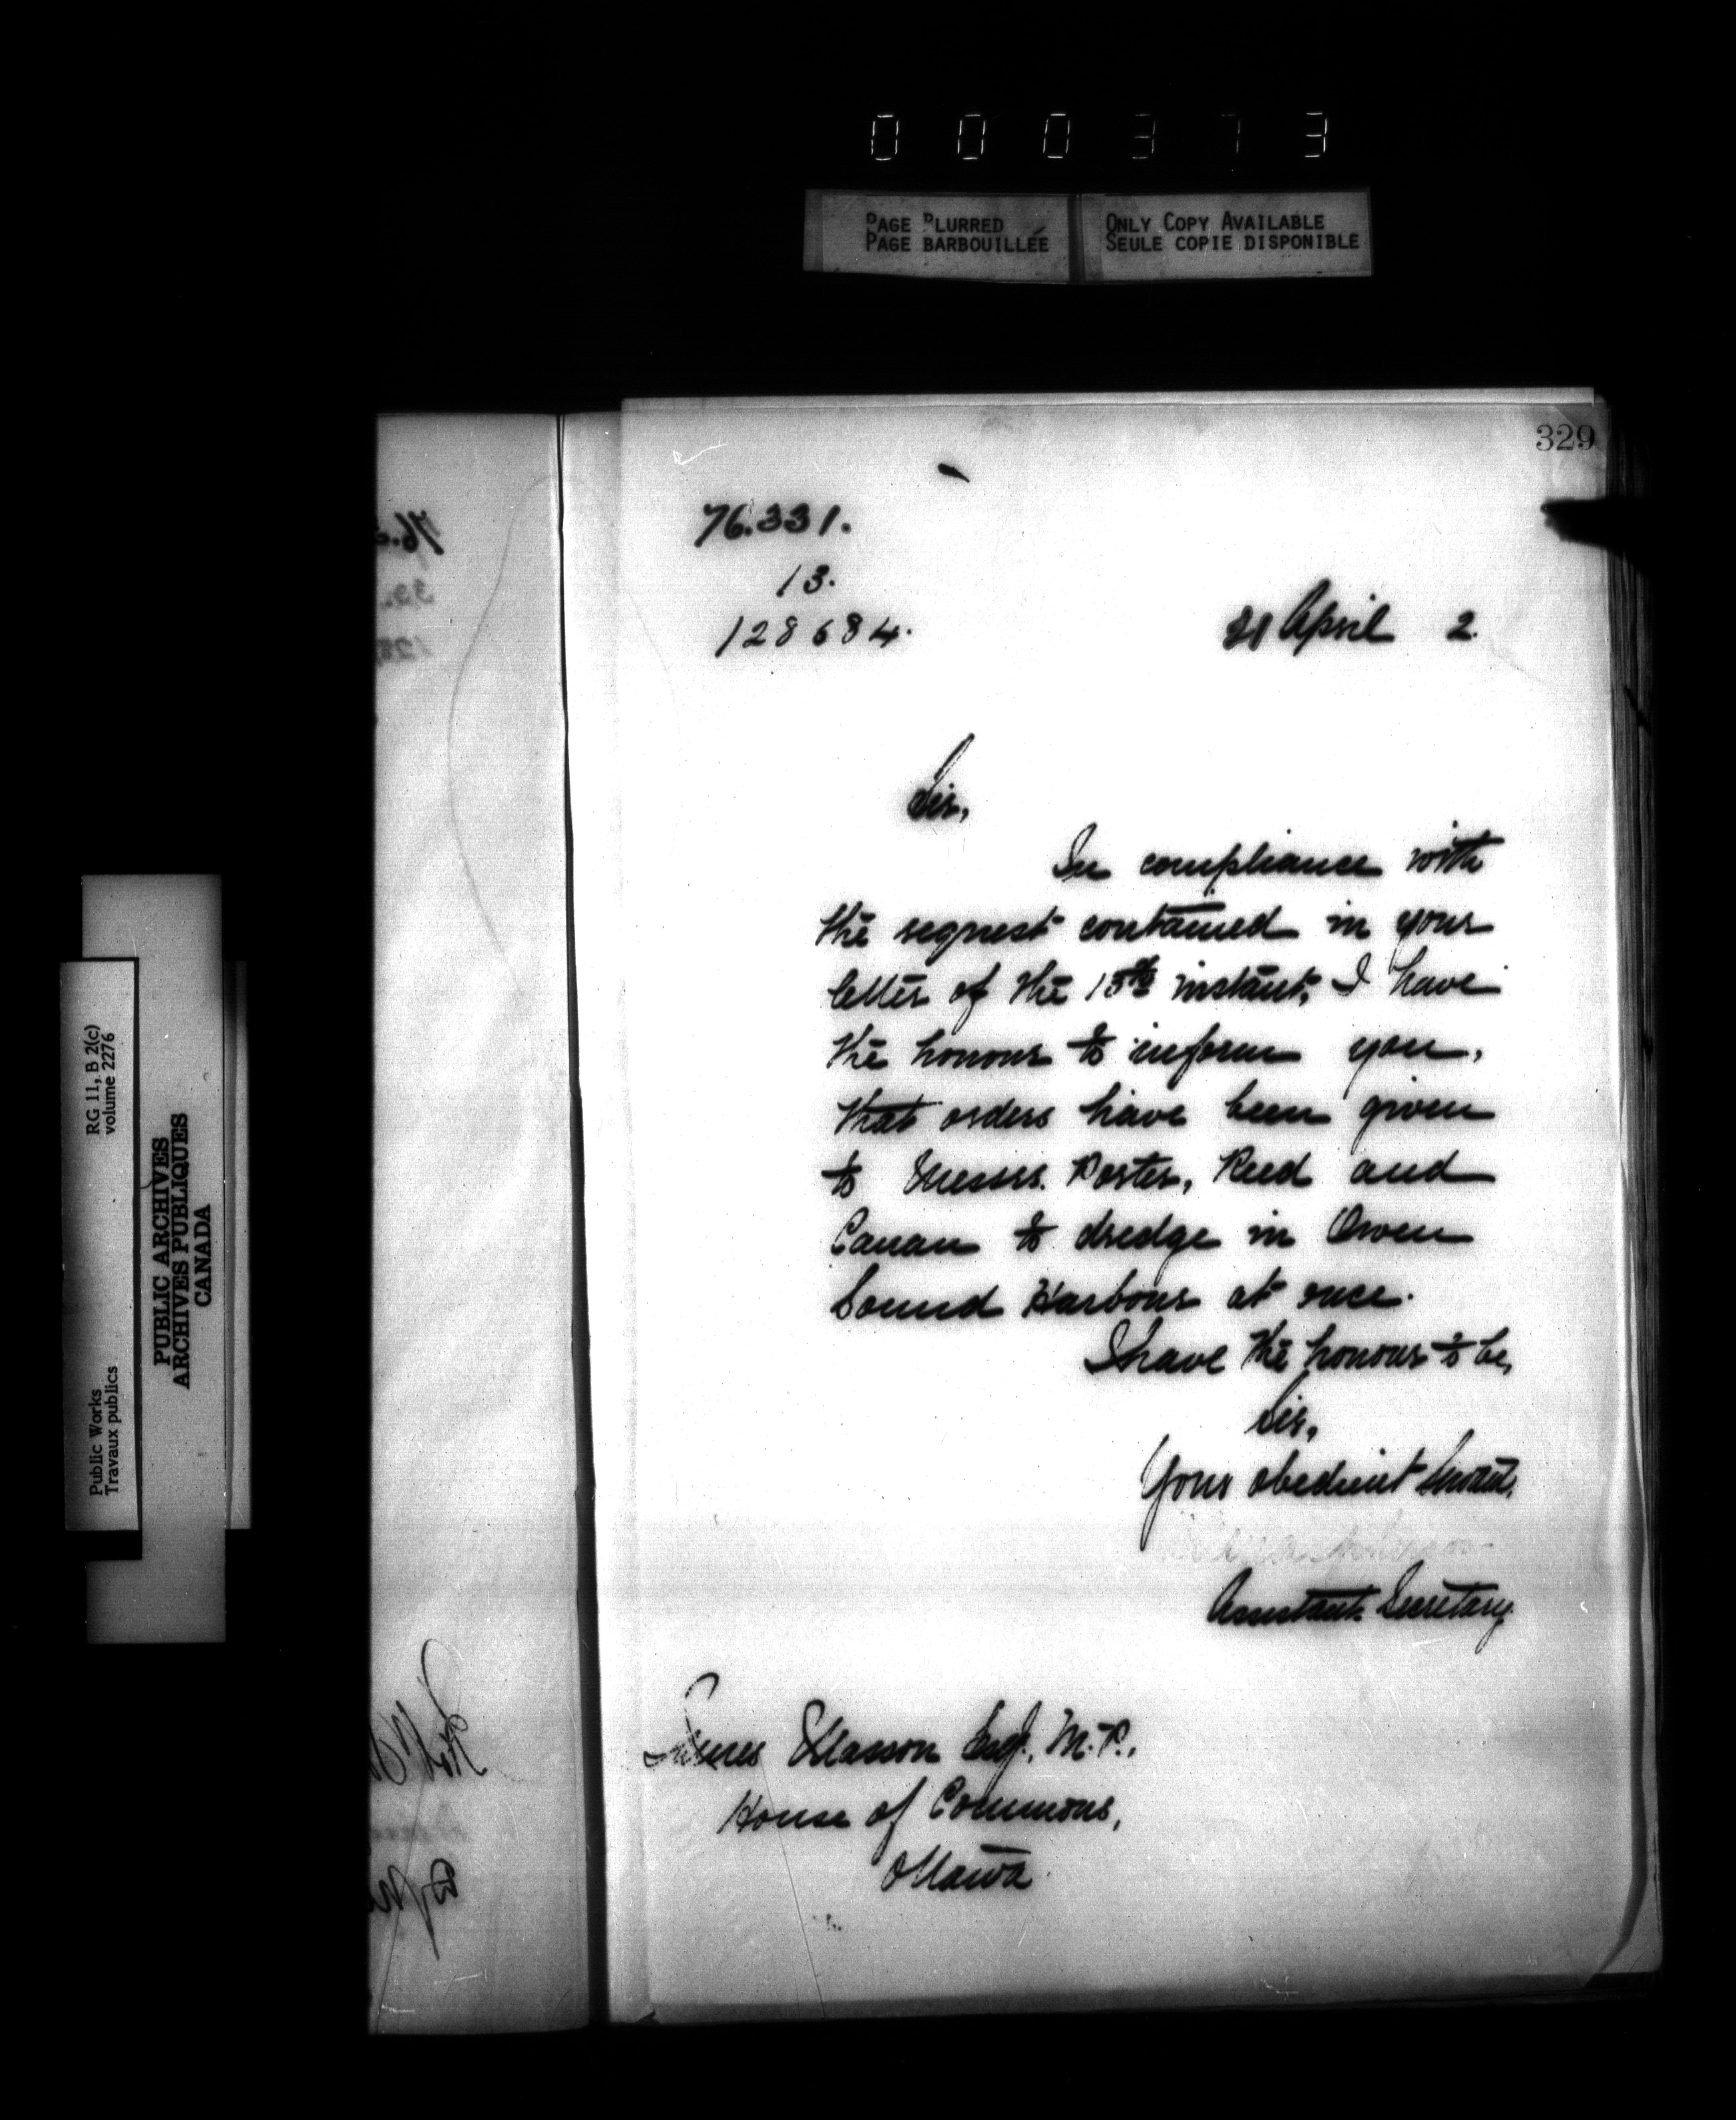 000373
PAGE BLURRED
PAGE BARBOUILLÉE
ONLY COPY AVAILABLE
SEULE COPIE DISPONIBLE
329
76.331.
13.
128684.
21 April 2.
Sir,
In compliance with
the request contained in your
letter of the 13th instant, I have
the honour to inform you,
that orders have been given
to Messrs. Porter, Reed and
Canan to dredge in Owen
Sound Harbour at once.
I have the honour to be,
Sir,
Your obedient Servant,
Assistant Secretary
James Masson Esq., M.P.,
House of Commons,
Ottawa
RG 11, B 2(c)
volume 2276
Public Works
Travaux publics
PUBLIC ARCHIVES
ARCHIVES PUBLIQUES
CANADA